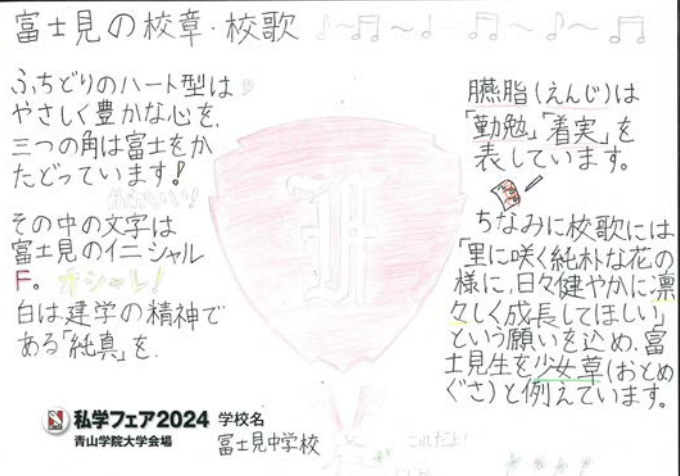 富士見の校章・校歌
ふちどりのハート型は
やさしく豊かな心を、
三つの角は富士をか
たどっています!
かわいい!
その中の文字は
富士見のイニシャル
F。オシャレ!
白は建学の精神で
ある「純真」を、
F
臙脂(えんじ)は
「勤勉」「着実」を
表しています。
ちなみに校歌には
「里に咲く純朴な花の
様に、日々健やかに凛
々しく成長してほしい」
という願いを込め、富
士見生を少女草(おとめ
ぐさ)と例えています。
これだよ!
私学フェア2024
青山学院大学会場
学校名
富士見中学校